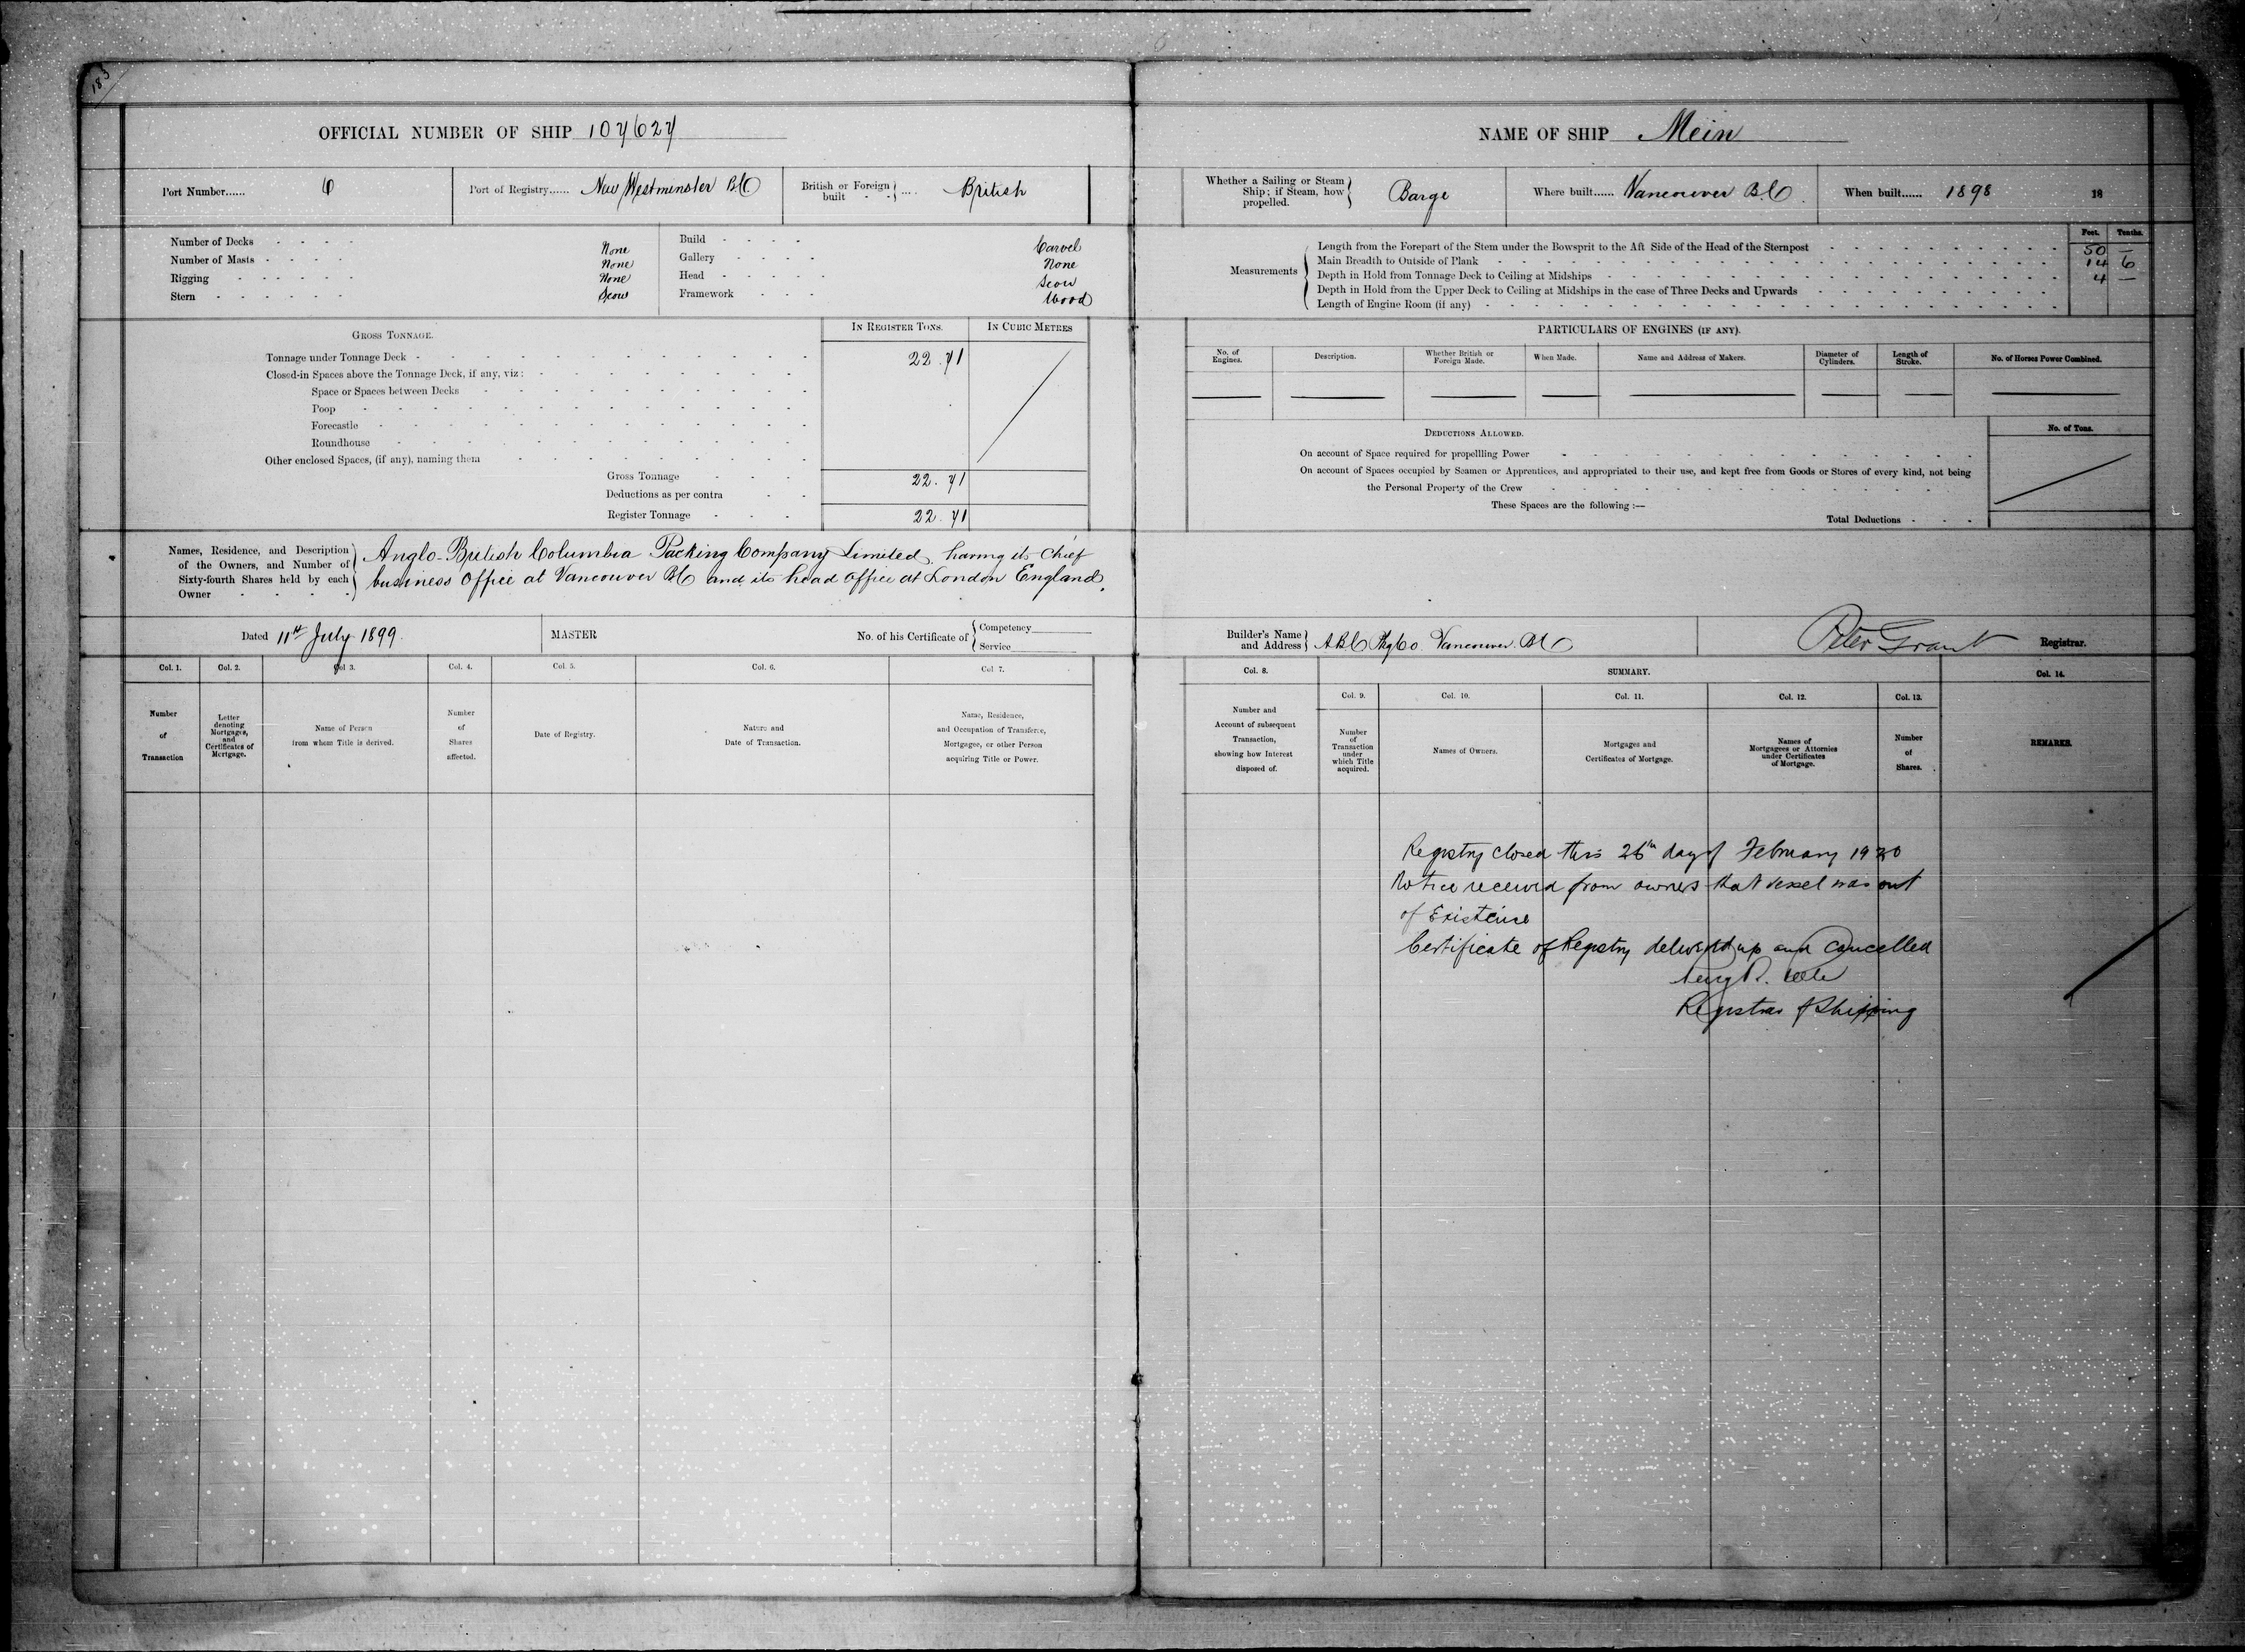 183
OFFICIAL NUMBER OF SHIP 107627
Port Number...... 6
Port of Registry...... New Westminster BC
British or Foreign built - - .... British
Number of Decks - - - - None
Number of Masts - - - - None
Rigging - - - - - None
Stern - - - - - - Scow
Build - - - - Carvel
Gallery - - - - None
Head - - - - - Scow
Framework - - - Wood
GROSS TONNAGE.
IN REGISTER TONS.
IN CUBIC METRES
Tonnage under Tonnage Deck - 22.71
Closed-in Spaces above the Tonnage Deck, if any, viz :
Space or Spaces between Decks
Poop
Forecastle
Roundhouse
Other enclosed Spaces, (if any), naming them
Gross Tonnage 22.71
Deductions as per contra
Register Tonnage 22.71
Names, Residence, and Description
of the Owners, and Number of
Sixty-fourth Shares held by each
Owner
Anglo-British Columbia Packing Company Limited, having its chief
business office at Vancouver BC and its head office at London England.
Dated 11th July 1899.
MASTER
No. of his Certificate of { Competency
Service
Col. 1.
Col. 2.
Col 3.
Col. 4.
Col. 5.
Col. 6.
Col 7.
Number
of
Transaction
Letter
denoting
Mortgages,
and
Certificates of
Mortgage.
Name of Person
from whom Title is derived.
Number
of
Shares
affected.
Date of Registry.
Nature and
Date of Transaction.
Name, Residence,
and Occupation of Transferee,
Mortgagee, or other Person
acquiring Title or Power.
NAME OF SHIP Mein
Whether a Sailing or Steam
Ship; if Steam, how
propelled.
Barge
Where built...... Vancouver B.C.
When built...... 1898 18
Feet. Tenths.
Measurements
Length from the Forepart of the Stem under the Bowsprit to the Aft Side of the Head of the Sternpost 50 —
Main Breadth to Outside of Plank 14 6
Depth in Hold from Tonnage Deck to Ceiling at Midships 4 —
Depth in Hold from the Upper Deck to Ceiling at Midships in the case of Three Decks and Upwards
Length of Engine Room (if any)
PARTICULARS OF ENGINES (IF ANY).
No. of
Engines.
Description.
Whether British or
Foreign Made.
When Made.
Name and Address of Makers.
Diameter of
Cylinders.
Length of
Stroke.
No. of Horses Power Combined.
DEDUCTIONS ALLOWED.
No. of Tons.
On account of Space required for propellling Power
On account of Spaces occupied by Seamen or Apprentices, and appropriated to their use, and kept free from Goods or Stores of every kind, not being
the Personal Property of the Crew
These Spaces are the following :—
Total Deductions
Builder's Name
and Address
A B C Pkg Co. Vancouver BC
Peter Grant Registrar.
Col. 8.
SUMMARY.
Col. 14.
Col. 9.
Col. 10.
Col. 11.
Col. 12.
Col. 13.
Number and
Account of subsequent
Transaction,
showing how Interest
disposed of.
Number
of
Transaction
under
which Title
acquired.
Names of Owners.
Mortgages and
Certificates of Mortgage.
Names of
Mortgagees or Attornies
under Certificates
of Mortgage.
Number
of
Shares.
REMARKS.
Registry closed this 26th day of February 1920
Notice received from owners that vessel was out
of Existence
Certificate of Registry delivered up and Cancelled
Registrar of Shipping